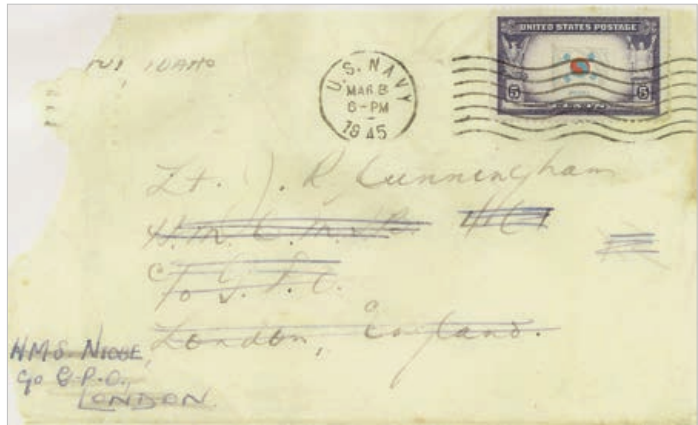 IDAHO
U.S. NAVY
MAR 8
6-PM
1945
UNITED STATES POSTAGE
5 5
Lt. J. R. Cunningham
H.M.C.M.T.B. 461
c/o G.P.O.
London, England.
HMS. NIOBE,
c/o G.P.O.,
LONDON